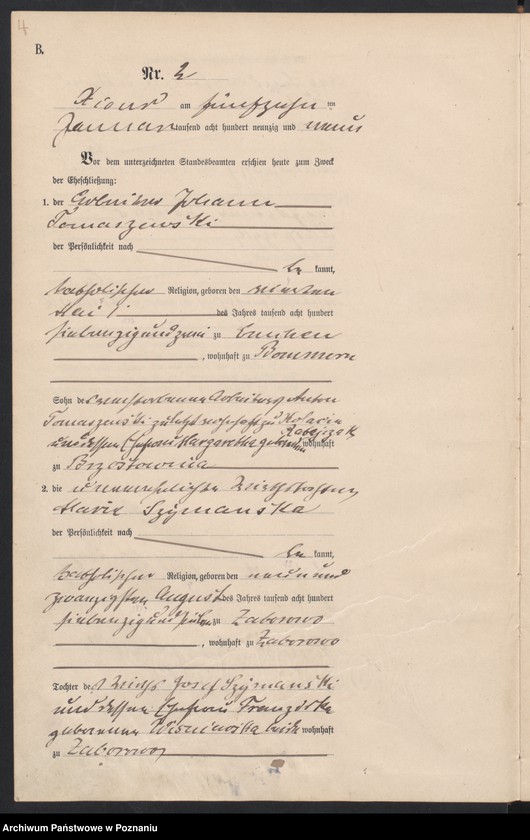 4
B.
Nr. 2
Xions am fünfzehn ten
Januar tausend acht hundert neunzig und neun
Vor dem unterzeichneten Standesbeamten erschien heute zum Zweck
der Eheschließung:
1. der Arbeiter Johann
Tomaszewski
der Persönlichkeit nach
be kannt,
katholischer Religion, geboren den vierten
Mai des Jahres tausend acht hundert
siebenzig und zwei zu
, wohnhaft zu Bommern
Sohn des verstorbenen Arbeiters Anton
Tomaszewski zuletzt wohnhaft zu
und dessen Ehefrau Margaretha geborenen wohnhaft
zu Brzostownia
2. die unverehelichte Wirthstochter
Maria Szymanska
der Persönlichkeit nach
be kannt,
katholischer Religion, geboren den neun und
zwanzigsten August des Jahres tausend acht hundert
siebenzig und sieben zu Zaborowo
, wohnhaft zu Zaborowo
Tochter des Wirths Josef Szymanski
und dessen Ehefrau Franziska
geborenen Wisniewska beide wohnhaft
zu Zaborowo
Archiwum Państwowe w Poznaniu